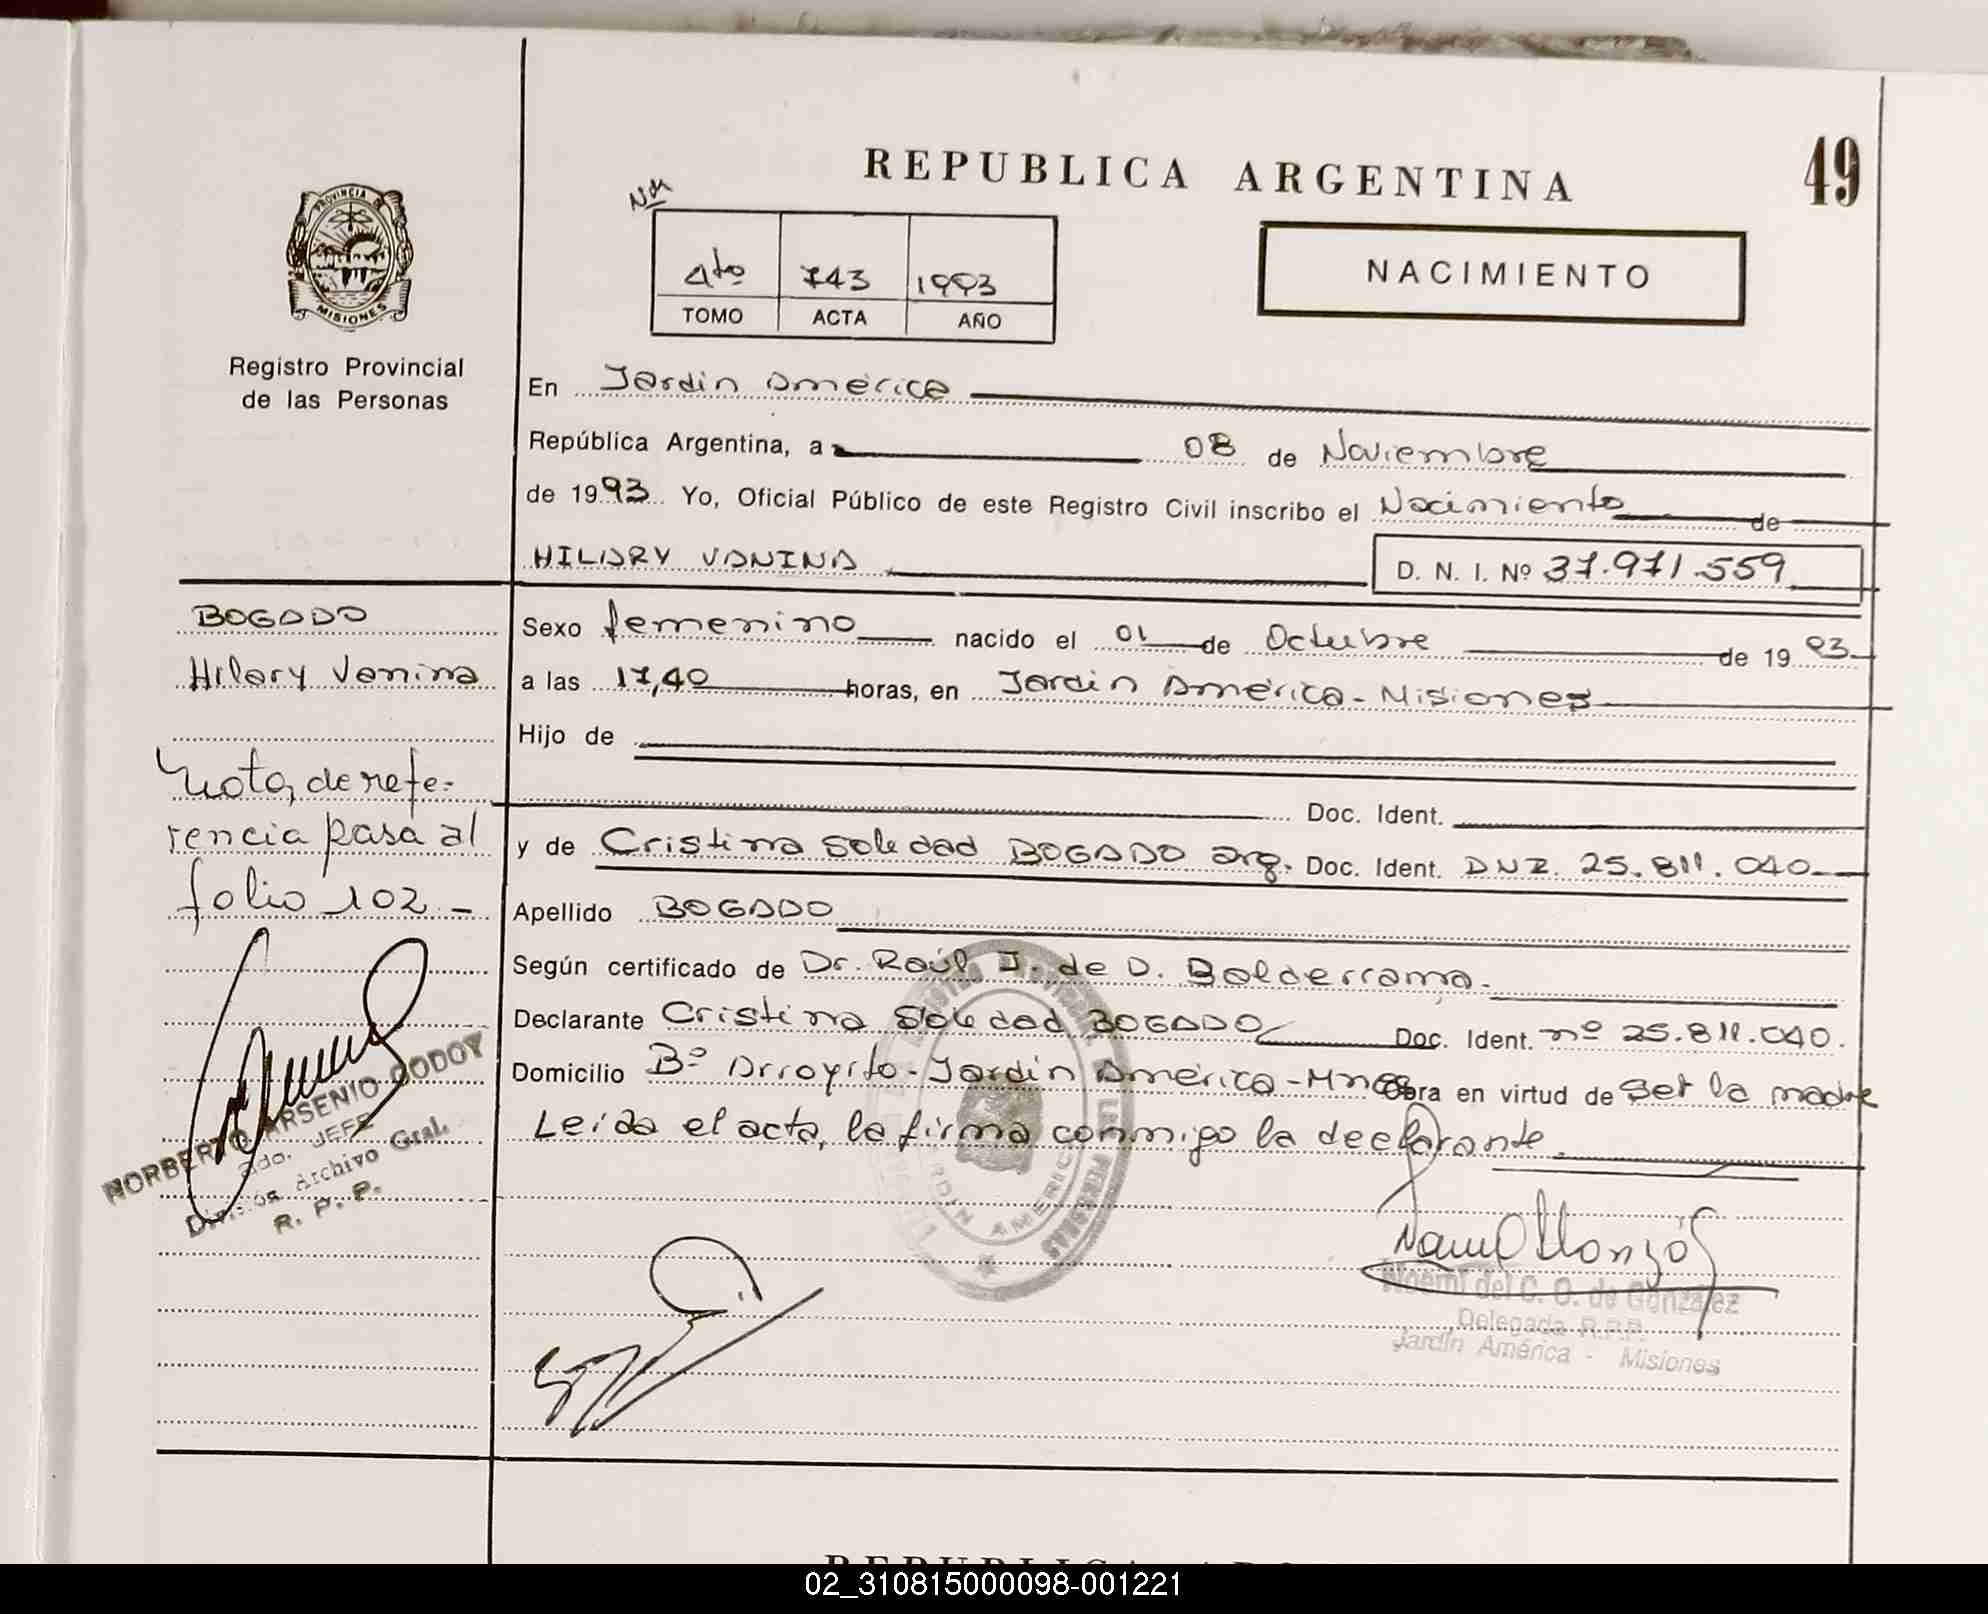 REPUBLICA ARGENTINA
49
PROVINCIA DE
MISIONES
Registro Provincial
de las Personas
4to 743 1993
TOMO ACTA AÑO
NACIMIENTO
En Jardín América
República Argentina, a 08 de Noviembre
de 1993 Yo, Oficial Público de este Registro Civil inscribo el Nacimiento de
HILARY VANINA D. N. I. Nº 37.971.559
BOGADO
Hilary Vanina
Nota de refe-
rencia pasa al
folio 102.-
NORBERTO ARSENIO GODOY
JEFE
División Archivo Gral.
R. P. P.
Sexo femenino nacido el 01 de Octubre de 1993
a las 17,40 horas, en Jardín América - Misiones
Hijo de
Doc. Ident.
y de Cristina Soledad BOGADO arg. Doc. Ident. DNI. 25.811.040
Apellido BOGADO
Según certificado de Dr. Raúl J. de D. Balderrama.
Declarante Cristina Soledad BOGADO Doc. Ident. nº 25.811.040.
Domicilio Bº Arroyito - Jardín América - Mnes Obra en virtud de ser la madre
Leída el acta, la firma conmigo la declarante.
Noemí del C. O. de González
Delegada R.P.P.
Jardín América - Misiones
02_310815000098-001221